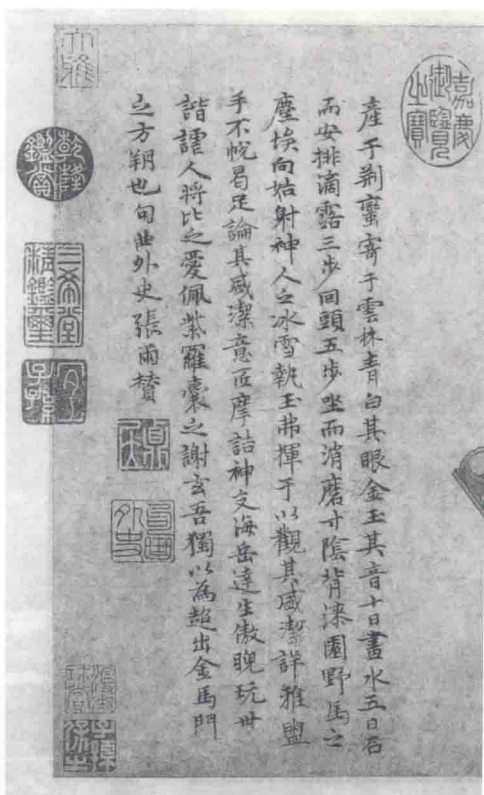 嘉慶御覽之寶
產于荊蠻寄于雲林青白其眼金玉其音十日畫水五日石
而安排滴露三步回頭五步坐而消磨寸陰背漆園野馬之
塵埃向姑射神人之冰雪執玉弗揮于以觀其盛潔詳雅盥
手不帨曷足論其盛潔意匠摩詰神交海岳達生傲睨玩世
諧謔人將比之愛佩紫羅囊之謝玄吾獨以為超出金馬門
之方朔也句曲外史張雨贊
大雅
乾隆鑑賞
三希堂精鑑璽
宜子孫